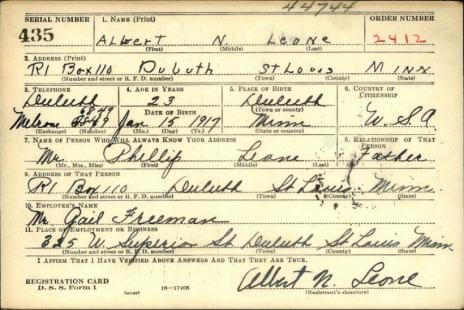 44744
SERIAL NUMBER 1. NAME (Print) ORDER NUMBER
435 ALBERT N. LEONE 2412
(First) (Middle) (Last)
2. ADDRESS (Print)
R1 Box 110 DULUTH ST LOUIS MINN
(Number and street or R. F. D. number) (Town) (County) (State)
3. TELEPHONE 4. AGE IN YEARS 5. PLACE OF BIRTH 6. COUNTRY OF CITIZENSHIP
Duluth 23 Duluth
(Town or county)
DATE OF BIRTH
Melrose 6849 Jan. 15 1917 Minn U.S.A.
(Exchange) (Number) (Mo.) (Day) (Yr.) (State or country)
7. NAME OF PERSON WHO WILL ALWAYS KNOW YOUR ADDRESS 8. RELATIONSHIP OF THAT PERSON
Mr. Phillip Leone Father
(Mr., Mrs., Miss) (First) (Middle) (Last)
9. ADDRESS OF THAT PERSON
R1 Box 110 Duluth St Louis Minn.
(Number and street or R. F. D. number) (Town) (County) (State)
10. EMPLOYER'S NAME
Mr. Gail Freeman
11. PLACE OF EMPLOYMENT OR BUSINESS
325 W. Superior St Duluth St Louis Minn
(Number and street or R. F. D. number) (Town) (County) (State)
I AFFIRM THAT I HAVE VERIFIED ABOVE ANSWERS AND THAT THEY ARE TRUE.
REGISTRATION CARD
D. S. S. Form 1 (over) 16—17105 Albert N. Leone
(Registrant's signature)